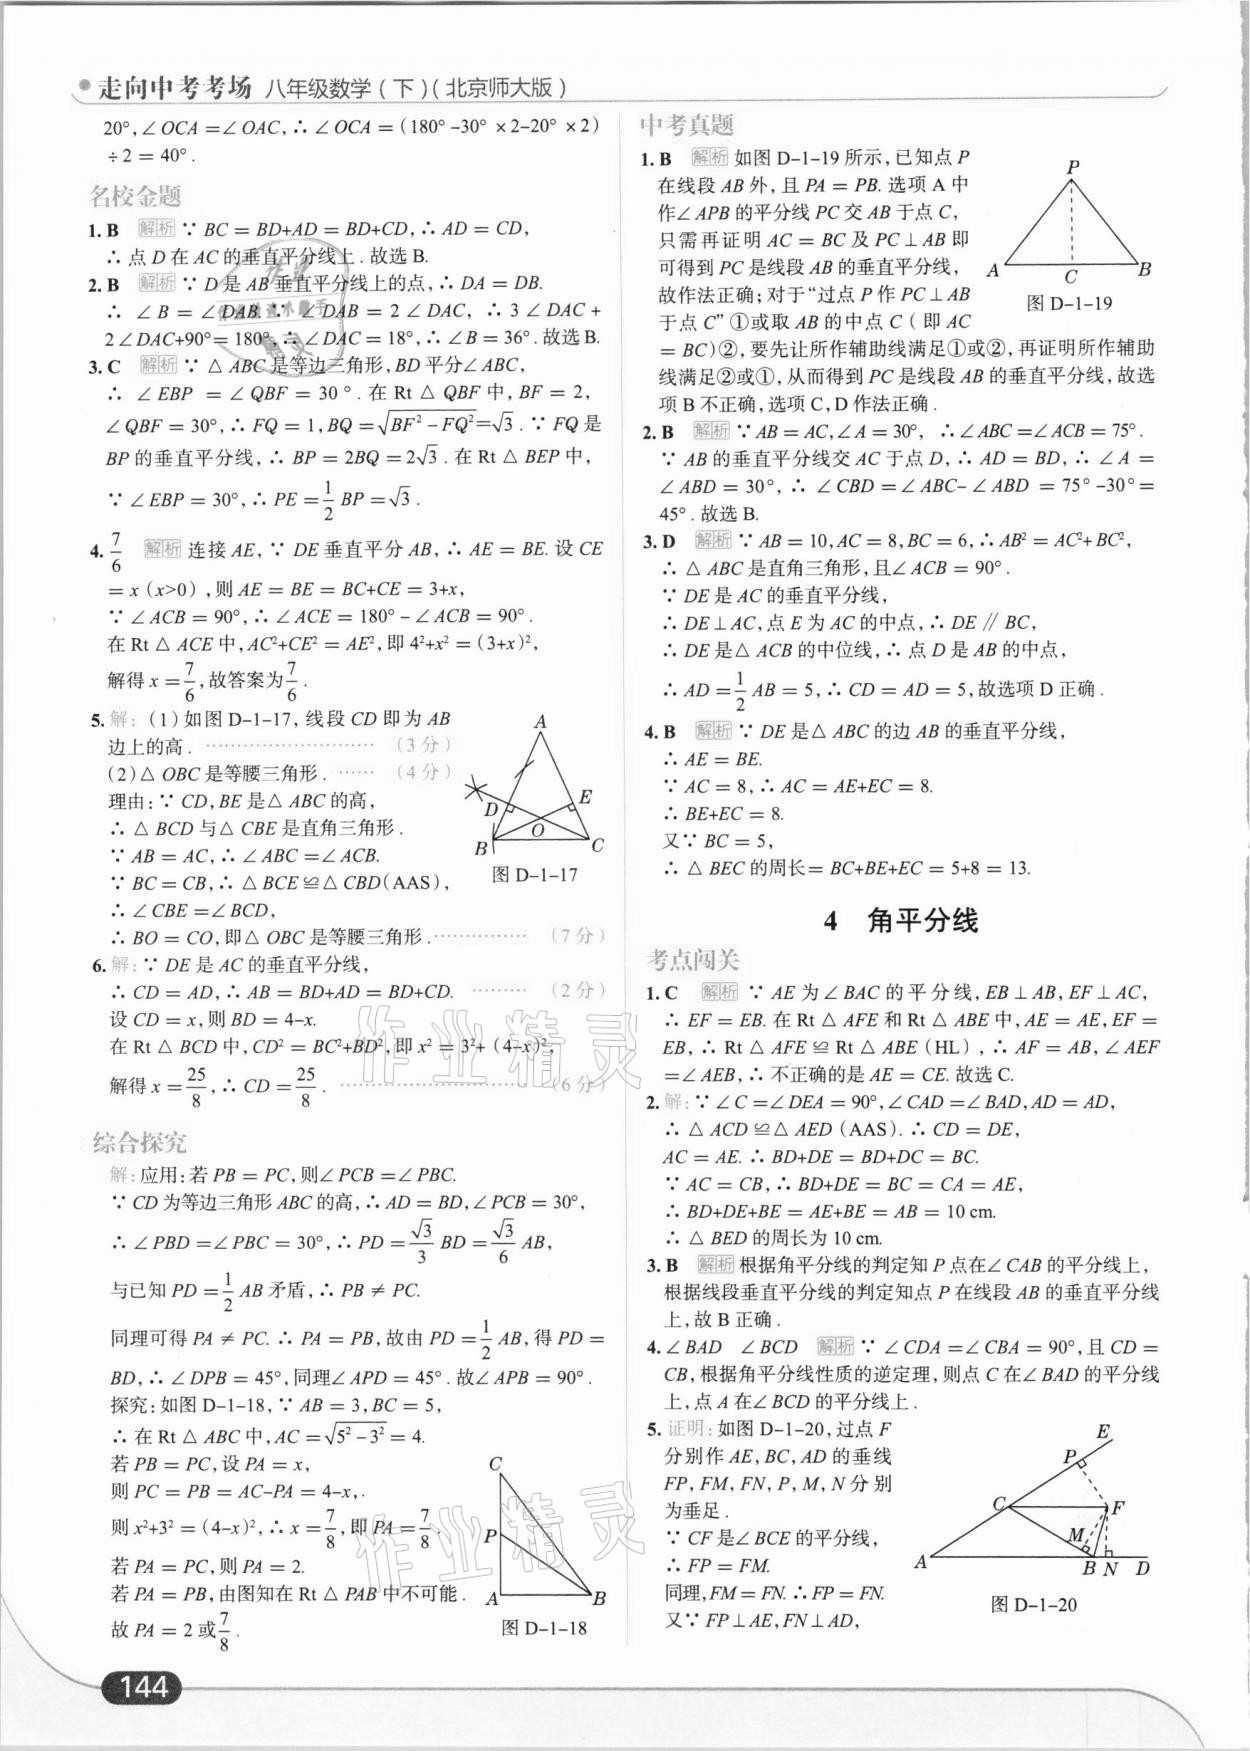 走向中考考场 八年级数学(下)(北京师大版)
20°,∠OCA=∠OAC,∴∠OCA=(180°-30°×2-20°×2)
÷2=40°.
名校金题
1. B 解析 ∵ BC=BD+AD=BD+CD,∴AD=CD,
∴点D在AC的垂直平分线上.故选B.
2. B 解析 ∵ D是AB垂直平分线上的点,∴DA=DB.
∴ ∠B=∠DAB.∵ ∠DAB=2∠DAC, ∴3∠DAC+
2∠DAC+90°=180°,∴∠DAC=18°,∴∠B=36°.故选B.
3. C 解析 ∵ △ABC是等边三角形,BD平分∠ABC,
∴ ∠EBP =∠QBF=30°.在Rt△QBF中,BF=2,
∠QBF=30°,∴FQ=1,BQ=√(BF²-FQ²)=√3.∵FQ是
BP的垂直平分线,∴BP=2BQ=2√3.在Rt△BEP中,
∵∠EBP=30°,∴PE=1/2 BP=√3.
4. 7/6 解析 连接AE,∵DE垂直平分AB,∴AE=BE.设CE
=x(x>0),则AE=BE=BC+CE=3+x,
∵∠ACB=90°,∴∠ACE=180°-∠ACB=90°.
在Rt△ACE中,AC²+CE²=AE²,即4²+x²=(3+x)²,
解得x=7/6,故答案为7/6.
5. 解:(1)如图D-1-17,线段CD即为AB
边上的高. ……………………(3分)
(2)△OBC是等腰三角形. ……(4分)
理由:∵CD,BE是△ABC的高,
∴△BCD与△CBE是直角三角形.
∵AB=AC,∴∠ABC=∠ACB.
∵BC=CB,∴△BCE≌△CBD(AAS),
∴∠CBE=∠BCD,
∴BO=CO,即△OBC是等腰三角形.……………(7分)
A
D
E
O
B
C
图D-1-17
6. 解:∵DE是AC的垂直平分线,
∴CD=AD,∴AB=BD+AD=BD+CD. ………(2分)
设CD=x,则BD=4-x.
在Rt△BCD中,CD²=BC²+BD²,即x²=3²+(4-x)²,
解得x=25/8,∴CD=25/8. ……………………(6分)
综合探究
解:应用:若PB=PC,则∠PCB=∠PBC.
∵CD为等边三角形ABC的高,∴AD=BD,∠PCB=30°,
∴∠PBD=∠PBC=30°,∴PD=√3/3 BD=√3/6 AB,
与已知PD=1/2 AB矛盾,∴PB≠PC.
同理可得PA≠PC.∴PA=PB,故由PD=1/2 AB,得PD=
BD,∴∠DPB=45°,同理∠APD=45°.故∠APB=90°.
探究:如图D-1-18,∵AB=3,BC=5,
∴在Rt△ABC中,AC=√(5²-3²)=4.
若PB=PC,设PA=x,
则PC=PB=AC-PA=4-x,
则x²+3²=(4-x)²,∴x=7/8,即PA=7/8.
若PA=PC,则PA=2.
若PA=PB,由图知在Rt△PAB中不可能.
故PA=2或7/8.
C
P
A
B
图D-1-18
144
中考真题
1. B 解析 如图D-1-19所示,已知点P
在线段AB外,且PA=PB.选项A中
作∠APB的平分线PC交AB于点C,
只需再证明AC=BC及PC⊥AB即
可得到PC是线段AB的垂直平分线,
故作法正确;对于“过点P作PC⊥AB
于点C”①或取AB的中点C(即AC
=BC)②,要先让所作辅助线满足①或②,再证明所作辅助
线满足②或①,从而得到PC是线段AB的垂直平分线,故选
项B不正确,选项C,D作法正确.
P
A
C
B
图D-1-19
2. B 解析 ∵AB=AC,∠A=30°, ∴∠ABC=∠ACB=75°.
∵AB的垂直平分线交AC于点D,∴AD=BD,∴∠A=
∠ABD=30°,∴∠CBD=∠ABC-∠ABD=75°-30°=
45°.故选B.
3. D 解析 ∵AB=10,AC=8,BC=6,∴AB²=AC²+BC²,
∴△ABC是直角三角形,且∠ACB=90°.
∵DE是AC的垂直平分线,
∴DE⊥AC,点E为AC的中点,∴DE∥BC,
∴DE是△ACB的中位线,∴点D是AB的中点,
∴AD=1/2 AB=5,∴CD=AD=5,故选项D正确.
4. B 解析 ∵DE是△ABC的边AB的垂直平分线,
∴AE=BE.
∵AC=8,∴AC=AE+EC=8.
∴BE+EC=8.
又∵BC=5,
∴△BEC的周长=BC+BE+EC=5+8=13.
4 角平分线
考点闯关
1. C 解析 ∵AE为∠BAC的平分线,EB⊥AB,EF⊥AC,
∴EF=EB.在Rt△AFE和Rt△ABE中,AE=AE,EF=
EB,∴Rt△AFE≌Rt△ABE(HL),∴AF=AB,∠AEF
=∠AEB,∴不正确的是AE=CE.故选C.
2. 解:∵∠C=∠DEA=90°,∠CAD=∠BAD,AD=AD,
∴△ACD≌△AED(AAS).∴CD=DE,
AC=AE.∴BD+DE=BD+DC=BC.
∵AC=CB,∴BD+DE=BC=CA=AE,
∴BD+DE+BE=AE+BE=AB=10 cm.
∴△BED的周长为10 cm.
3. B 解析 根据角平分线的判定知P点在∠CAB的平分线上,
根据线段垂直平分线的判定知点P在线段AB的垂直平分线
上,故B正确.
4. ∠BAD ∠BCD 解析 ∵∠CDA=∠CBA=90°,且CD=
CB,根据角平分线性质的逆定理,则点C在∠BAD的平分线
上,点A在∠BCD的平分线上.
5. 证明:如图D-1-20,过点F
分别作AE,BC,AD的垂线
FP,FM,FN,P,M,N分别
为垂足.
∵CF是∠BCE的平分线,
∴FP=FM.
同理,FM=FN.∴FP=FN.
又∵FP⊥AE,FN⊥AD,
E
P
C
F
M
A
B
N
D
图D-1-20
作业精灵
作业精灵